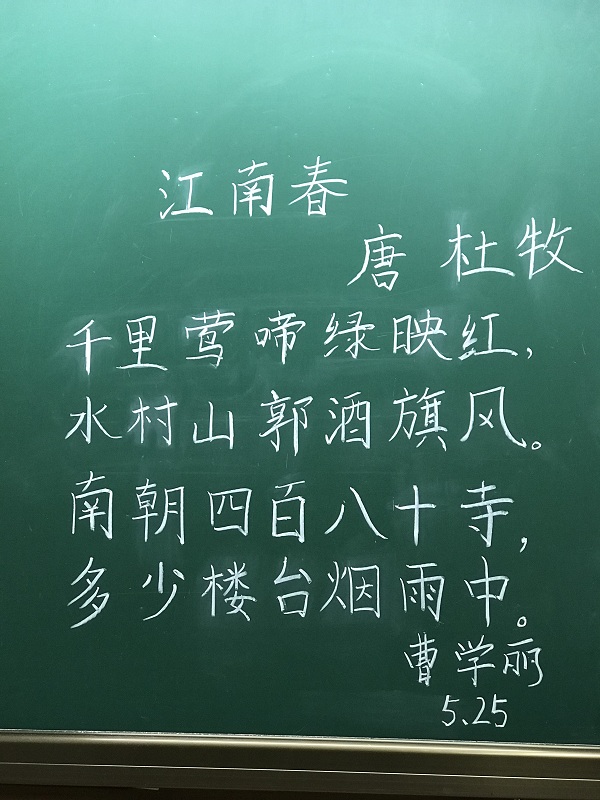 江南春
唐 杜牧
千里莺啼绿映红,
水村山郭酒旗风。
南朝四百八十寺,
多少楼台烟雨中。
曹学丽
5.25